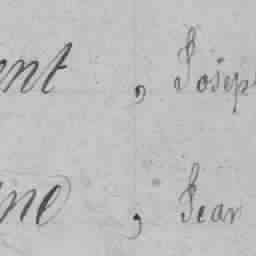 ent, Josep
ne, Jean